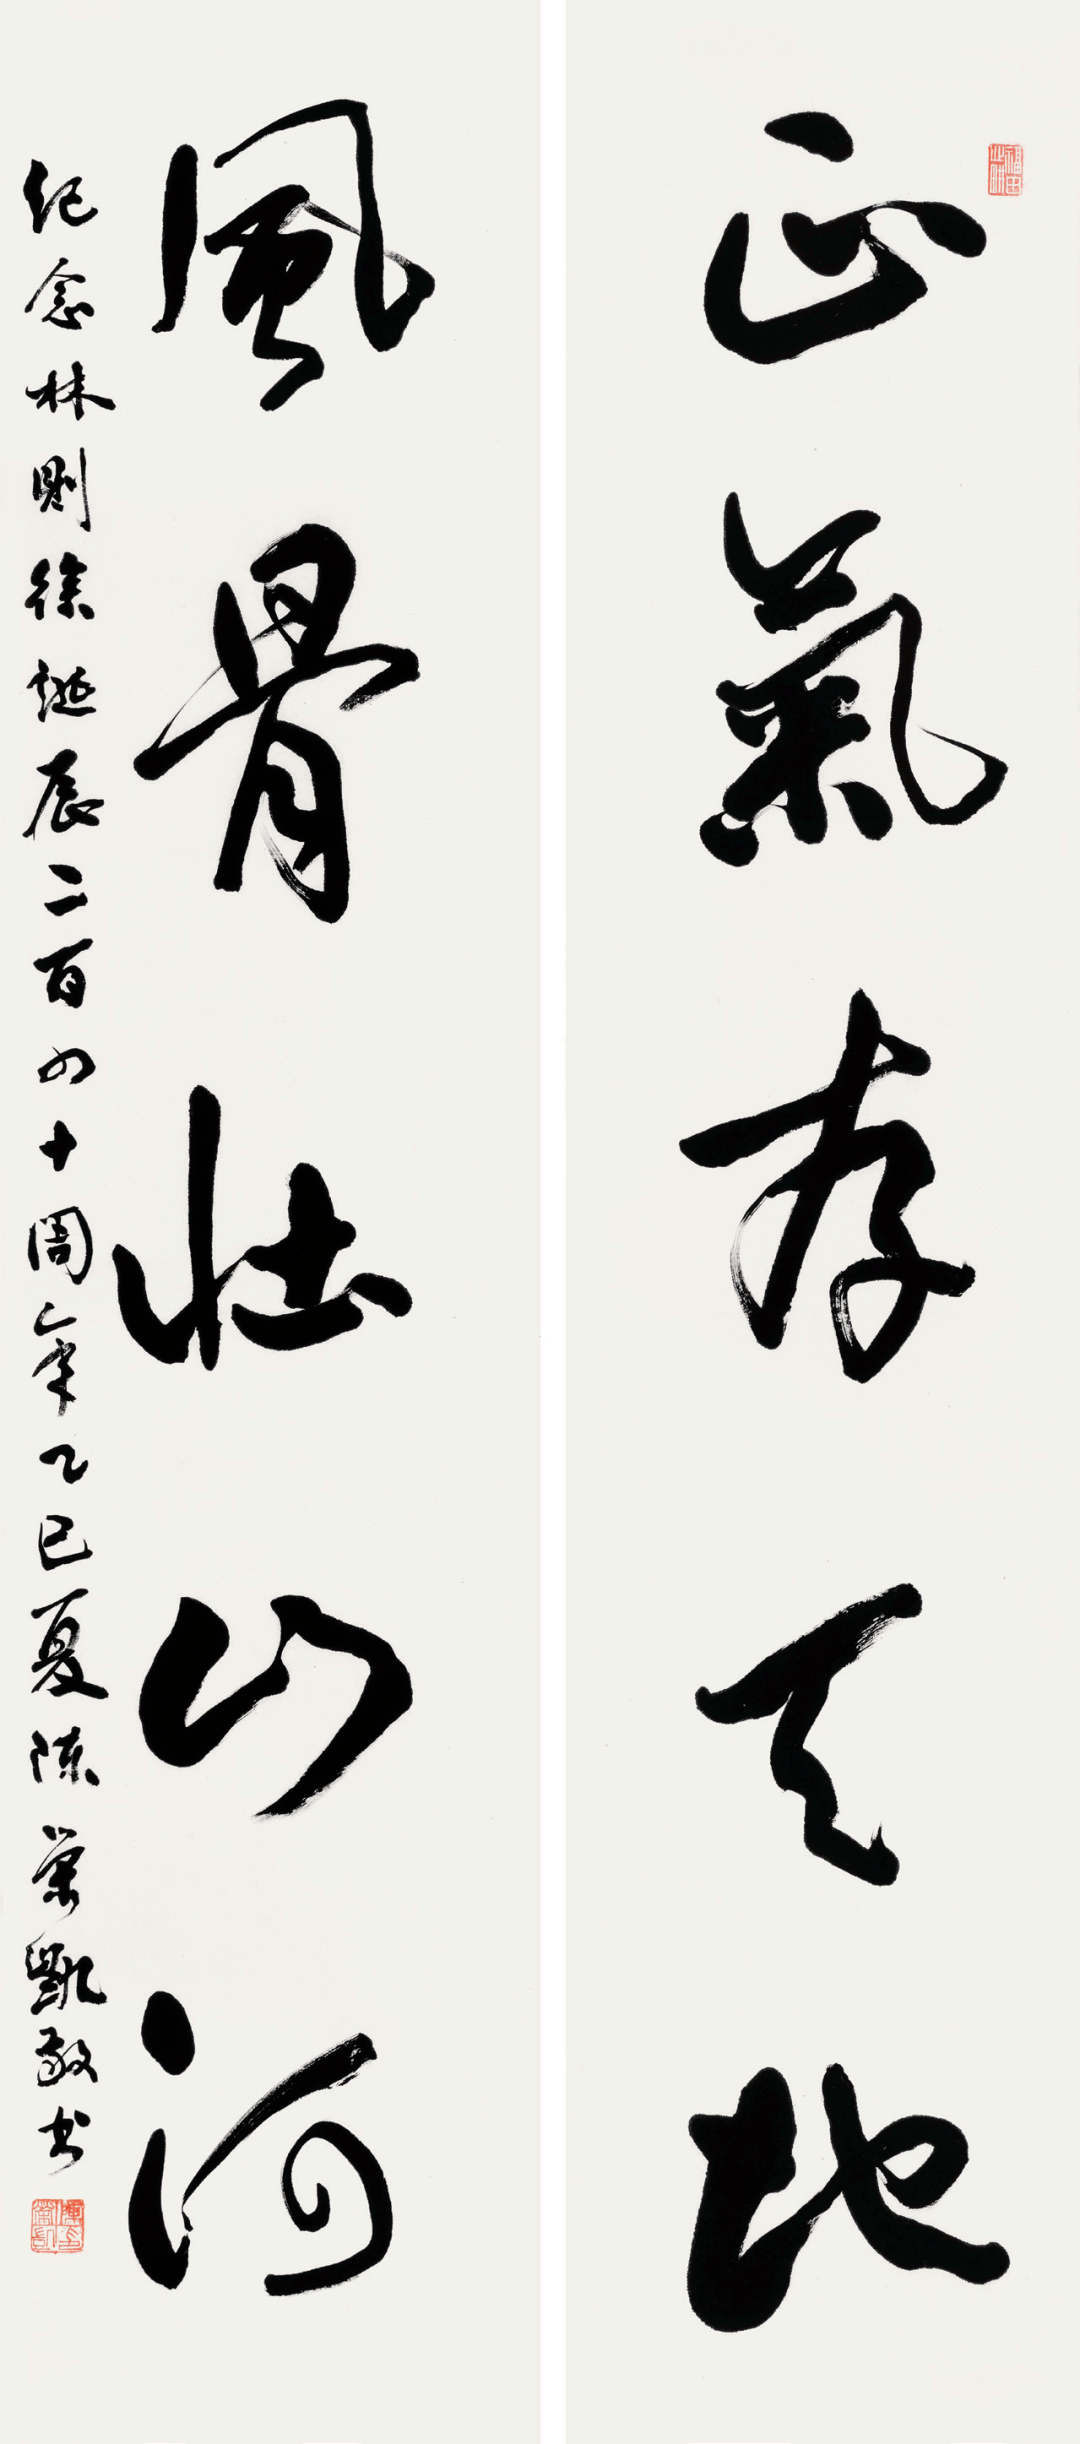 正氣存天地
風骨壯山河
纪念林則徐誕辰二百四十周年乙巳夏陈榮凱敬书